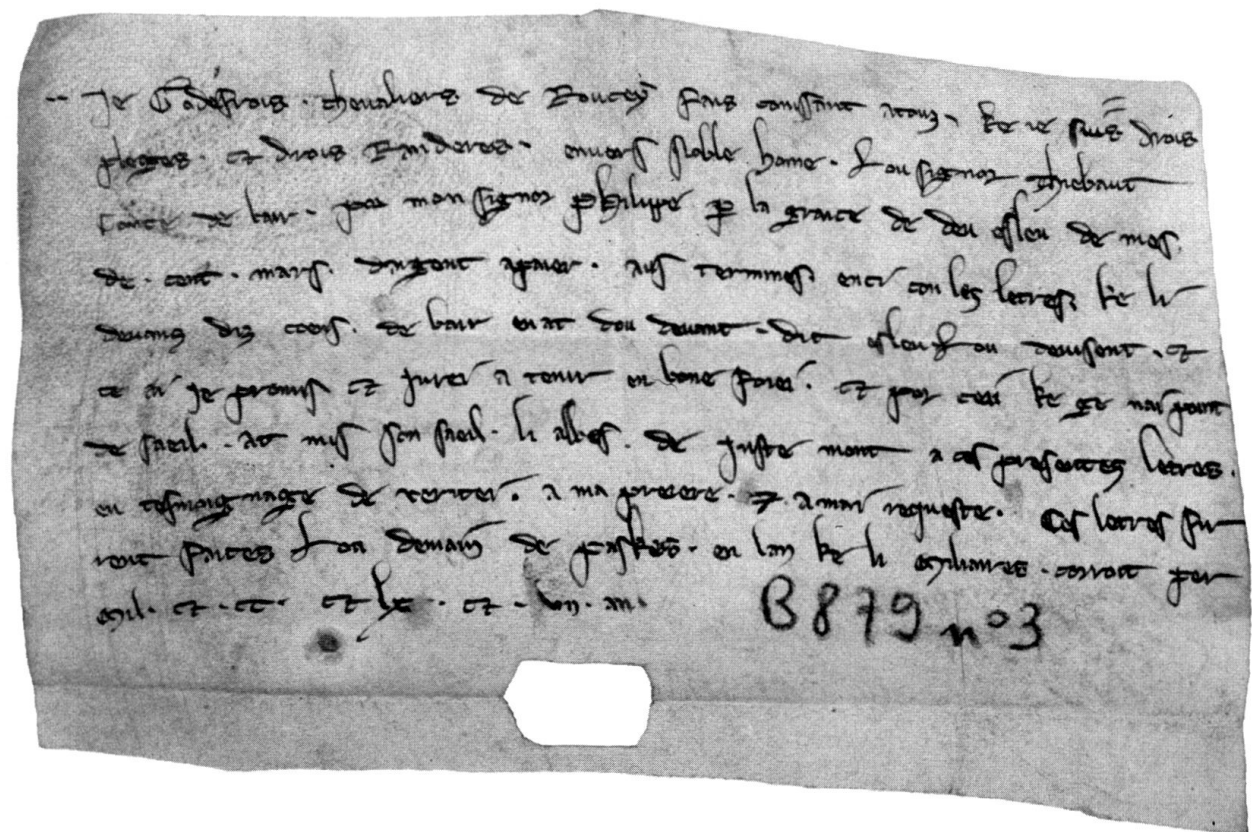 Je Godefrois . chevaliers de Roucey fais conissant a touz . ke ie suis drois
pleges . et drois Randeres . envers noble home . Lou signor Thiebaut
conte de bair . por mon signor philipe p la graice de deu esleu de mes .
de . cent . mars . dargent a paier . aus termines . enci con les letres . ke li
devanz diz coens . de bair en at dou devant . dit esleu Lou devisent . et
ce ai je promis et jurei a tenir en bone foiei . et por ceu ke ge nai point
de saeil . at mis son saeil . li abbes . de juste mont a ces presentez letres .
en tesmoignage de veritei . a ma preiere . et a mai requeste . Ces letres fu
rent faites Lon demain de paskes . en lan ke li miliaires . corroit per
mil . et . cc . et lx . et . un . an .
B 879 n° 3